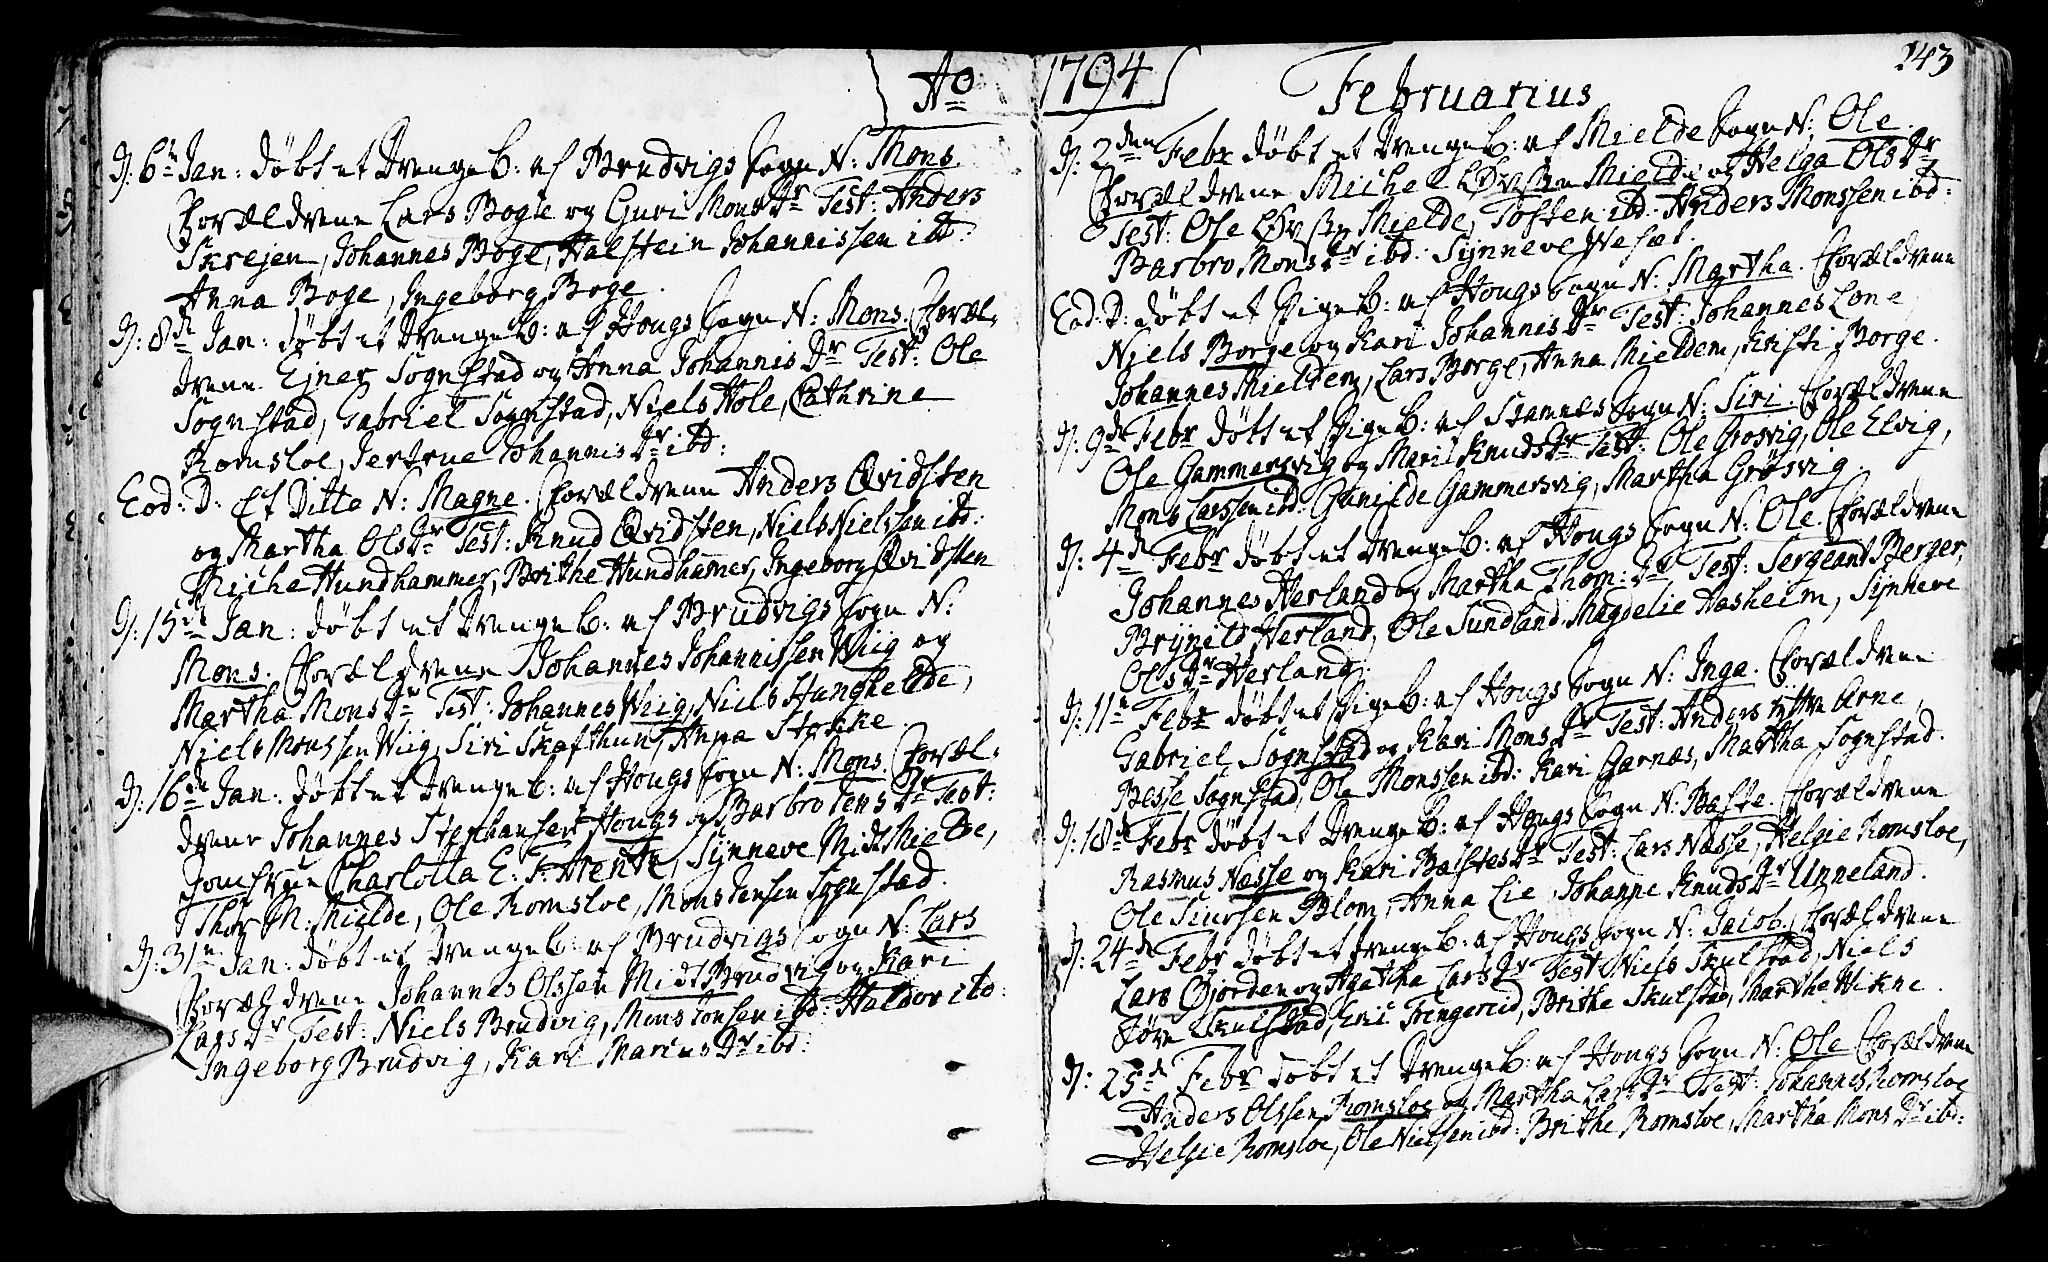 Ao
D: 6te Jan: døbt et Drengeb: af Brudvigs Sogn N: Mons.
Forældrene Lars Boge og Guri MonsDr Test: Anders
Skrejen, Johannes Boge, Halstein Johannissen ibd:
Anna Boge, Ingeborg Boge.
D: 8de Jan: døbt et Drengeb: af Hougs Sogn N: Mons. Foræl-
drene Ejner Sognstad og Anna JohannisDr Test: Ole
Sognstad, Gabriel Sognstad, Niels Hole, Cathrine
Romsloe, Jertrue JohannisDr ibd:
Eod: D: et Ditte N: Magne. Forældrene Anders Qvidsten
og Martha OlsDr Test: Knud Qvidsten, Niels Nielssen ibd:
Miche Hundhammer, Brithe Hundhamer, Ingeborg Qvidsten
D: 15de Jan: døbt et Drengeb: af Brudvigs Sogn N:
Mons. Forældrene Johannes Johannissen Wiig og
Martha MonsDr Test: Johannes Wiig, Niels Hunghelde,
Niels Monssen Wiig, Siri Skafthun, Anna Stokke.
D: 16de Jan: døbt et Drengeb: af Hougs Sogn N: Mons. Foræl-
drene Johannes Stephansen Hougs og Barbro JensDr Test:
Jomfrue Charlotta E: F: Henk, Synneve MidtMielde,
Thor M: Mielde, Ole Romsloe, Mons Jensen Sognstad.
D: 31te Jan: døbt et Drengeb: af Brudvigs Sogn N: Lars
Forældrene Johannes Olssen MidtBrudvig og Kari
LarsDr Test: Niels Brudvig, Mons Jonsen ibd: Haldor ibd:
Ingeborg Brudvig, Kari MariusDr ibd:
1794
143
Februarius
D: 2den Febr døbt et Drengeb: af Mielde Sogn N: Ole.
Forældrene Michel Mielde og Helga OlsDr
Test: Ole Mielde, Tosten ibd: Anders Monssen ibd:
Barbro MonsDr ibd: Synneve Wefæt.
Eod: D: døbt et Pigeb: af Hougs Sogn N: Martha. Forældrene
Niels Borge og Kari JohannisDr Test: Johannes Lone,
Johannes Mieldem, Lars Borge, Anna Mieldem, Kristi Borge.
D: 9de Febr døbt et Pigeb: af Stamnes Sogn N: Siri. Forældrene
Ole Gammersvig og Marie KnudsDr Test: Ole Grosvig, Ole Elvig,
Mons Larssen ibd: Gunilde Gammersvig, Martha Grøsvig.
D: 4de Febr døbt et Drengeb: af Hougs Sogn N: Ole. Forældrene
Johannes Herland og Martha Thom:Dr Test: Sergeant Berger,
Brynild Herland, Ole Sundland, Magdelie Aasheim, Synneve
OlsDr Herland.
D: 11te Febr døbt et Pigeb: af Hougs Sogn N: Inga. Forældrene
Gabriel Sognstad og Kari MonsDr Test: Anders Arne,
Besse Sognstad, Ole Monssen ibd: Kari Garnæs, Martha Sognstad.
D: 18de Febr døbt et Drengeb: af Hougs Sogn N: Baste. Forældrene
Rasmus Næsse og Kari BastesDr Test: Lars Næsse, Helgie Romsloe,
Ole Siursen Blom, Anna Lie, Johanne KnudsDr Unneland.
D: 24de Febr døbt et Drengeb: af Hougs Sogn N: Jacob. Forældrene
Lars Gjorden og Agatha LarsDr Test: Niels Skulstad, Niels
Skulstad, Eric Fregereid, Brithe Skulstad, Marthe Hikne.
D: 25de Febr døbt et Drengeb: af Hougs Sogn N: Ole Forældrene
Anders Olssen Romsloe og Martha LarsDr Test: Johannes Romsloe
Helgie Romsloe, Ole Nielsen ibd: Brithe Romsloe, Martha MonsDr ibd: